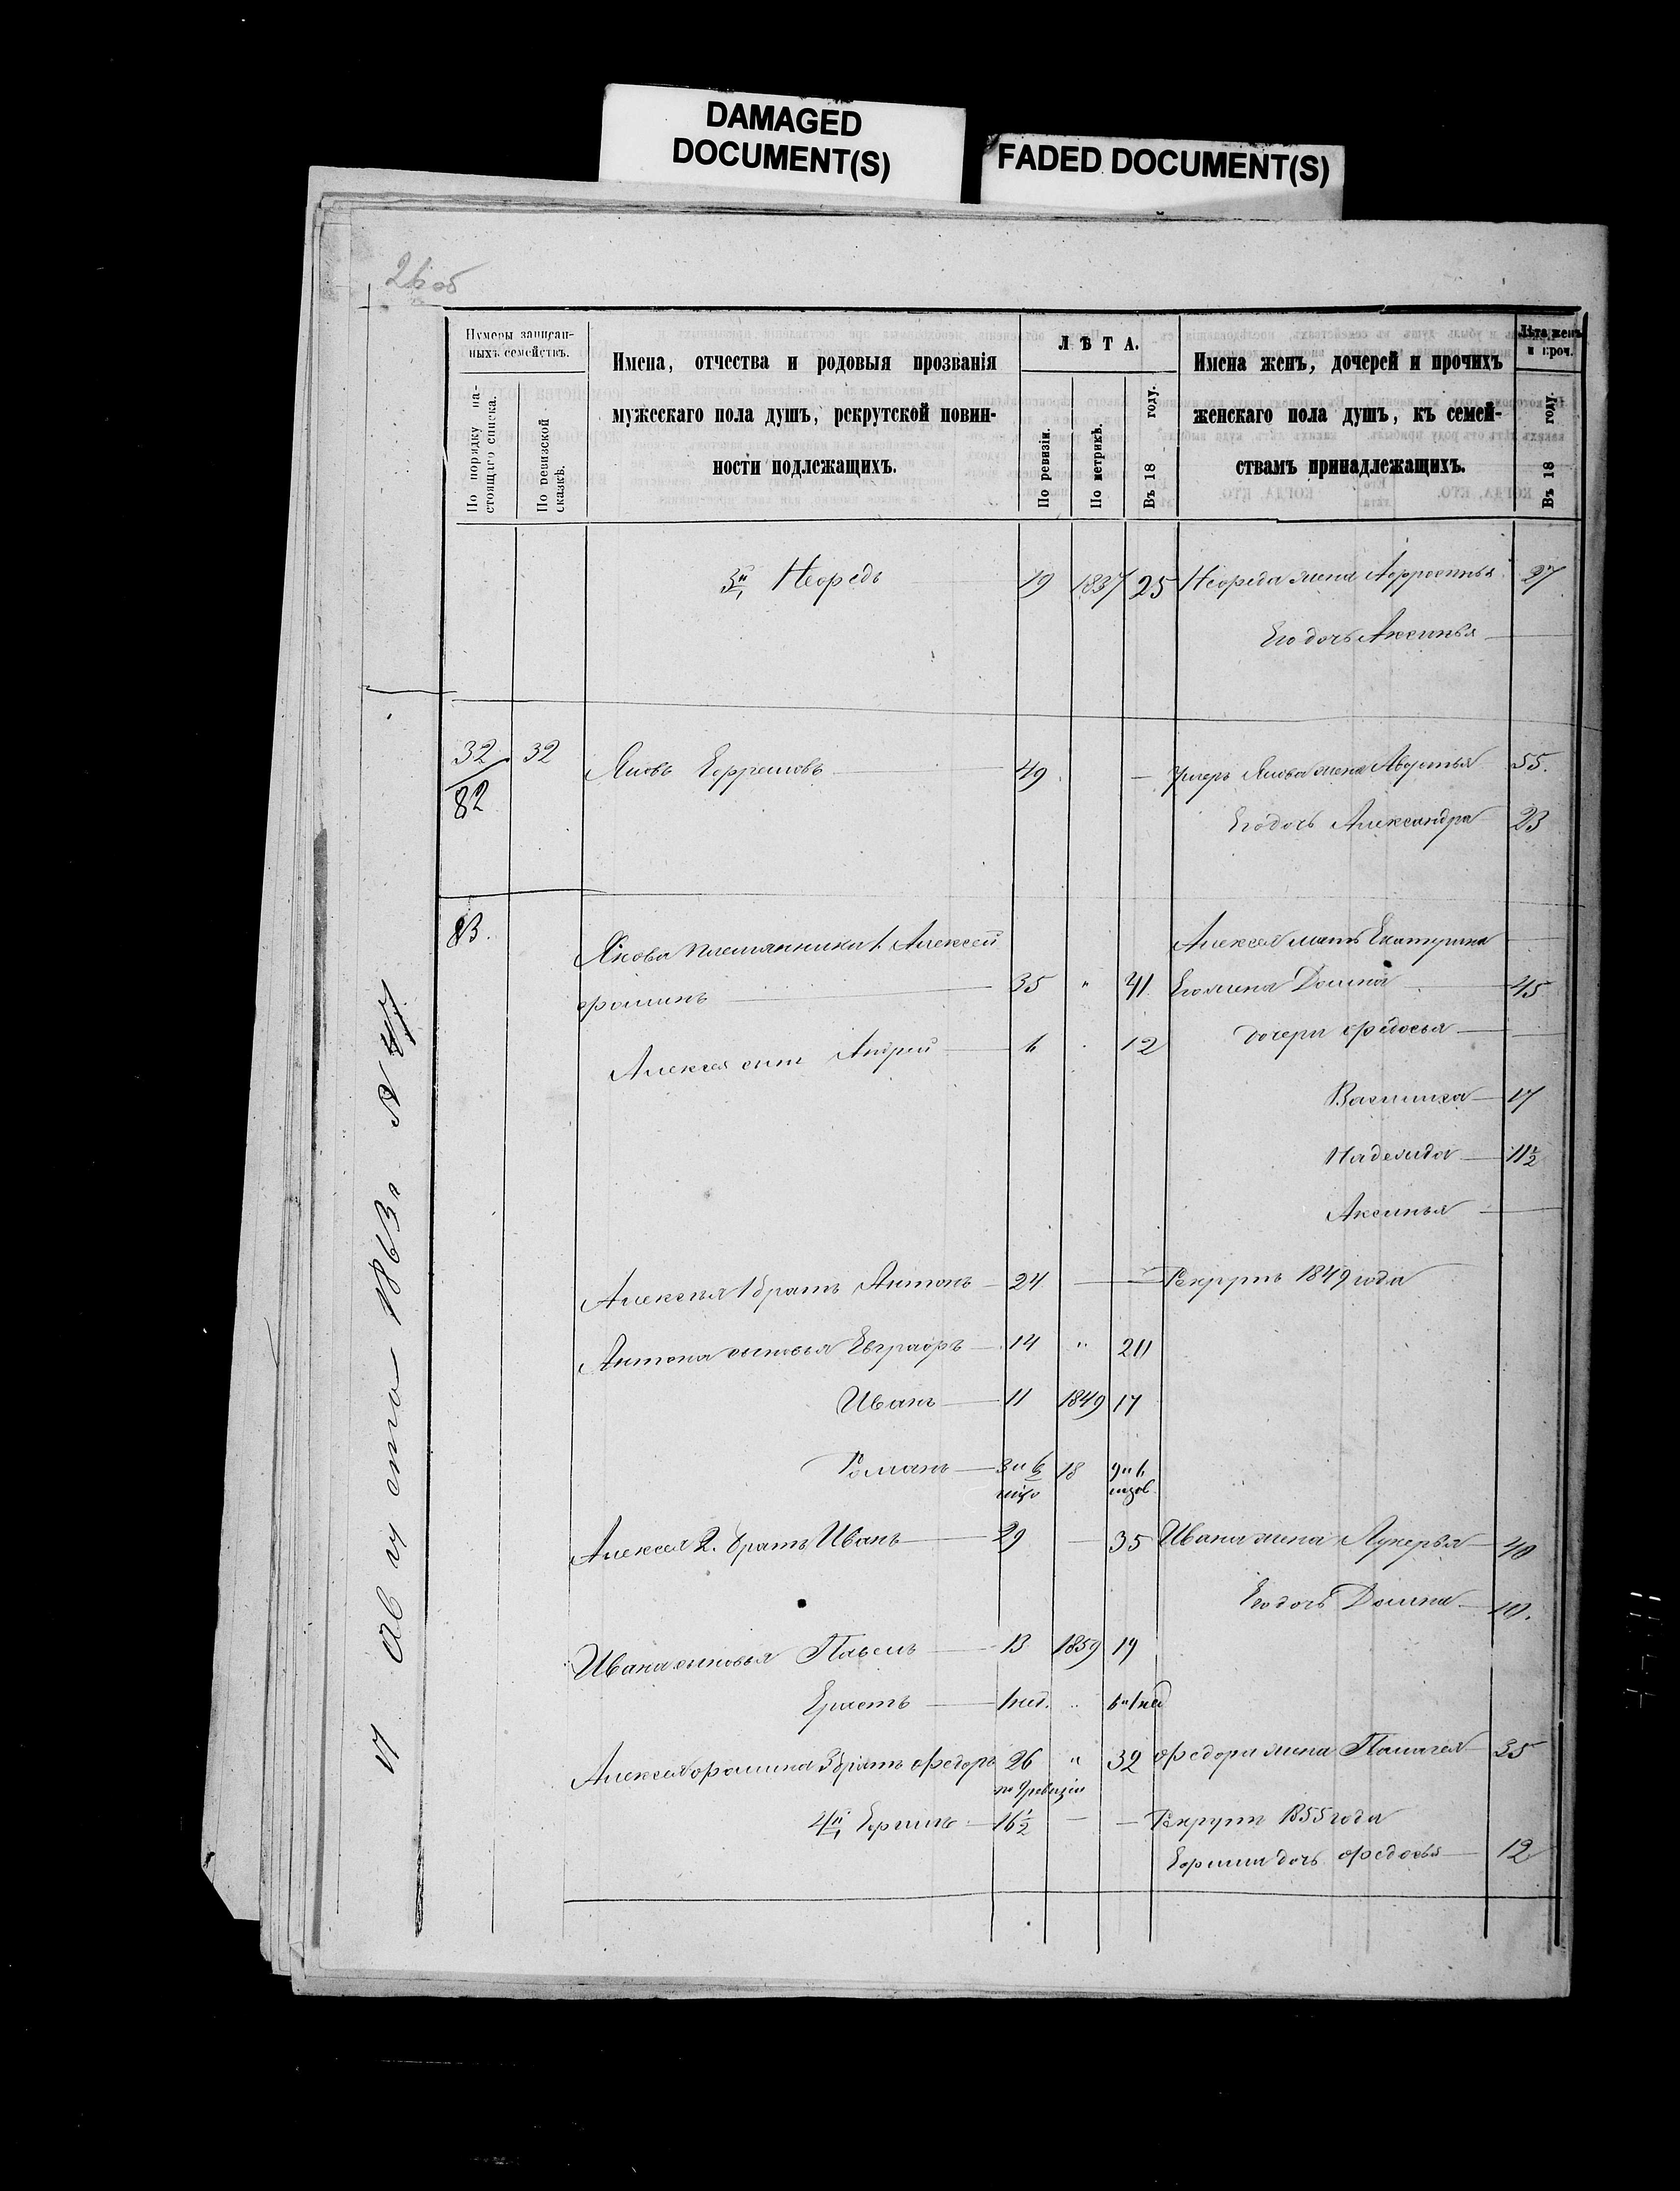 DAMAGED
DOCUMENT(S)
FADED DOCUMENT(S)
26 об
Нумеры записан-
ныхъ семействъ.
По порядку на-
стоящаго списка.
По ревизской
сказкѣ.
Имена, отчества и родовыя прозванія
мужескаго пола душъ, рекрутской повин-
ности подлежащихъ.
ЛѢТА.
По ревизіи.
По метрикѣ.
Въ 18 году.
Имена женъ, дочерей и прочихъ
женскаго пола душъ, къ семей-
ствамъ принадлежащихъ.
Лѣта женъ
и проч.
Въ 18 году.
3й 19 1837 25 жена 27
Его дочь Аксинья
32 32 Яковъ Ефремовъ 49 — умеръ Якова жена Авдотья 55.
82
Его дочь Александра 23
83. Якова племянники 1. Алексей Алексея мать Екатерина
Фоминъ 35 " 41 Его жена Домна 45
Алексея сынъ Андрей 6 12 дочери Федосья
Василиса 17
Надежда 11½
Аксинья
Алексея 1 братъ Антонъ 24 — — Рекрутъ 1849 года
Антона сыновья Евграфъ 14 " 20
Иванъ 11 1849 17
Романъ 3 и 6 18 9 и 6
Алексея 2. братъ Иванъ 29 — 35 Ивана жена Лукерья 40
Его дочь Домна 10.
Ивана сыновья Павелъ 13 1859 19
Ерастъ 1 нед. 6 и 1 нед
Алексея Фомина 3 братъ Федоръ 26 " 32 Федора жена Пелагея 35
по 9 ревизіи
4й Ефимъ 16½ — — Рекрутъ 1855 года
Ефима дочь Федосья 12
Августа 1863 г. №